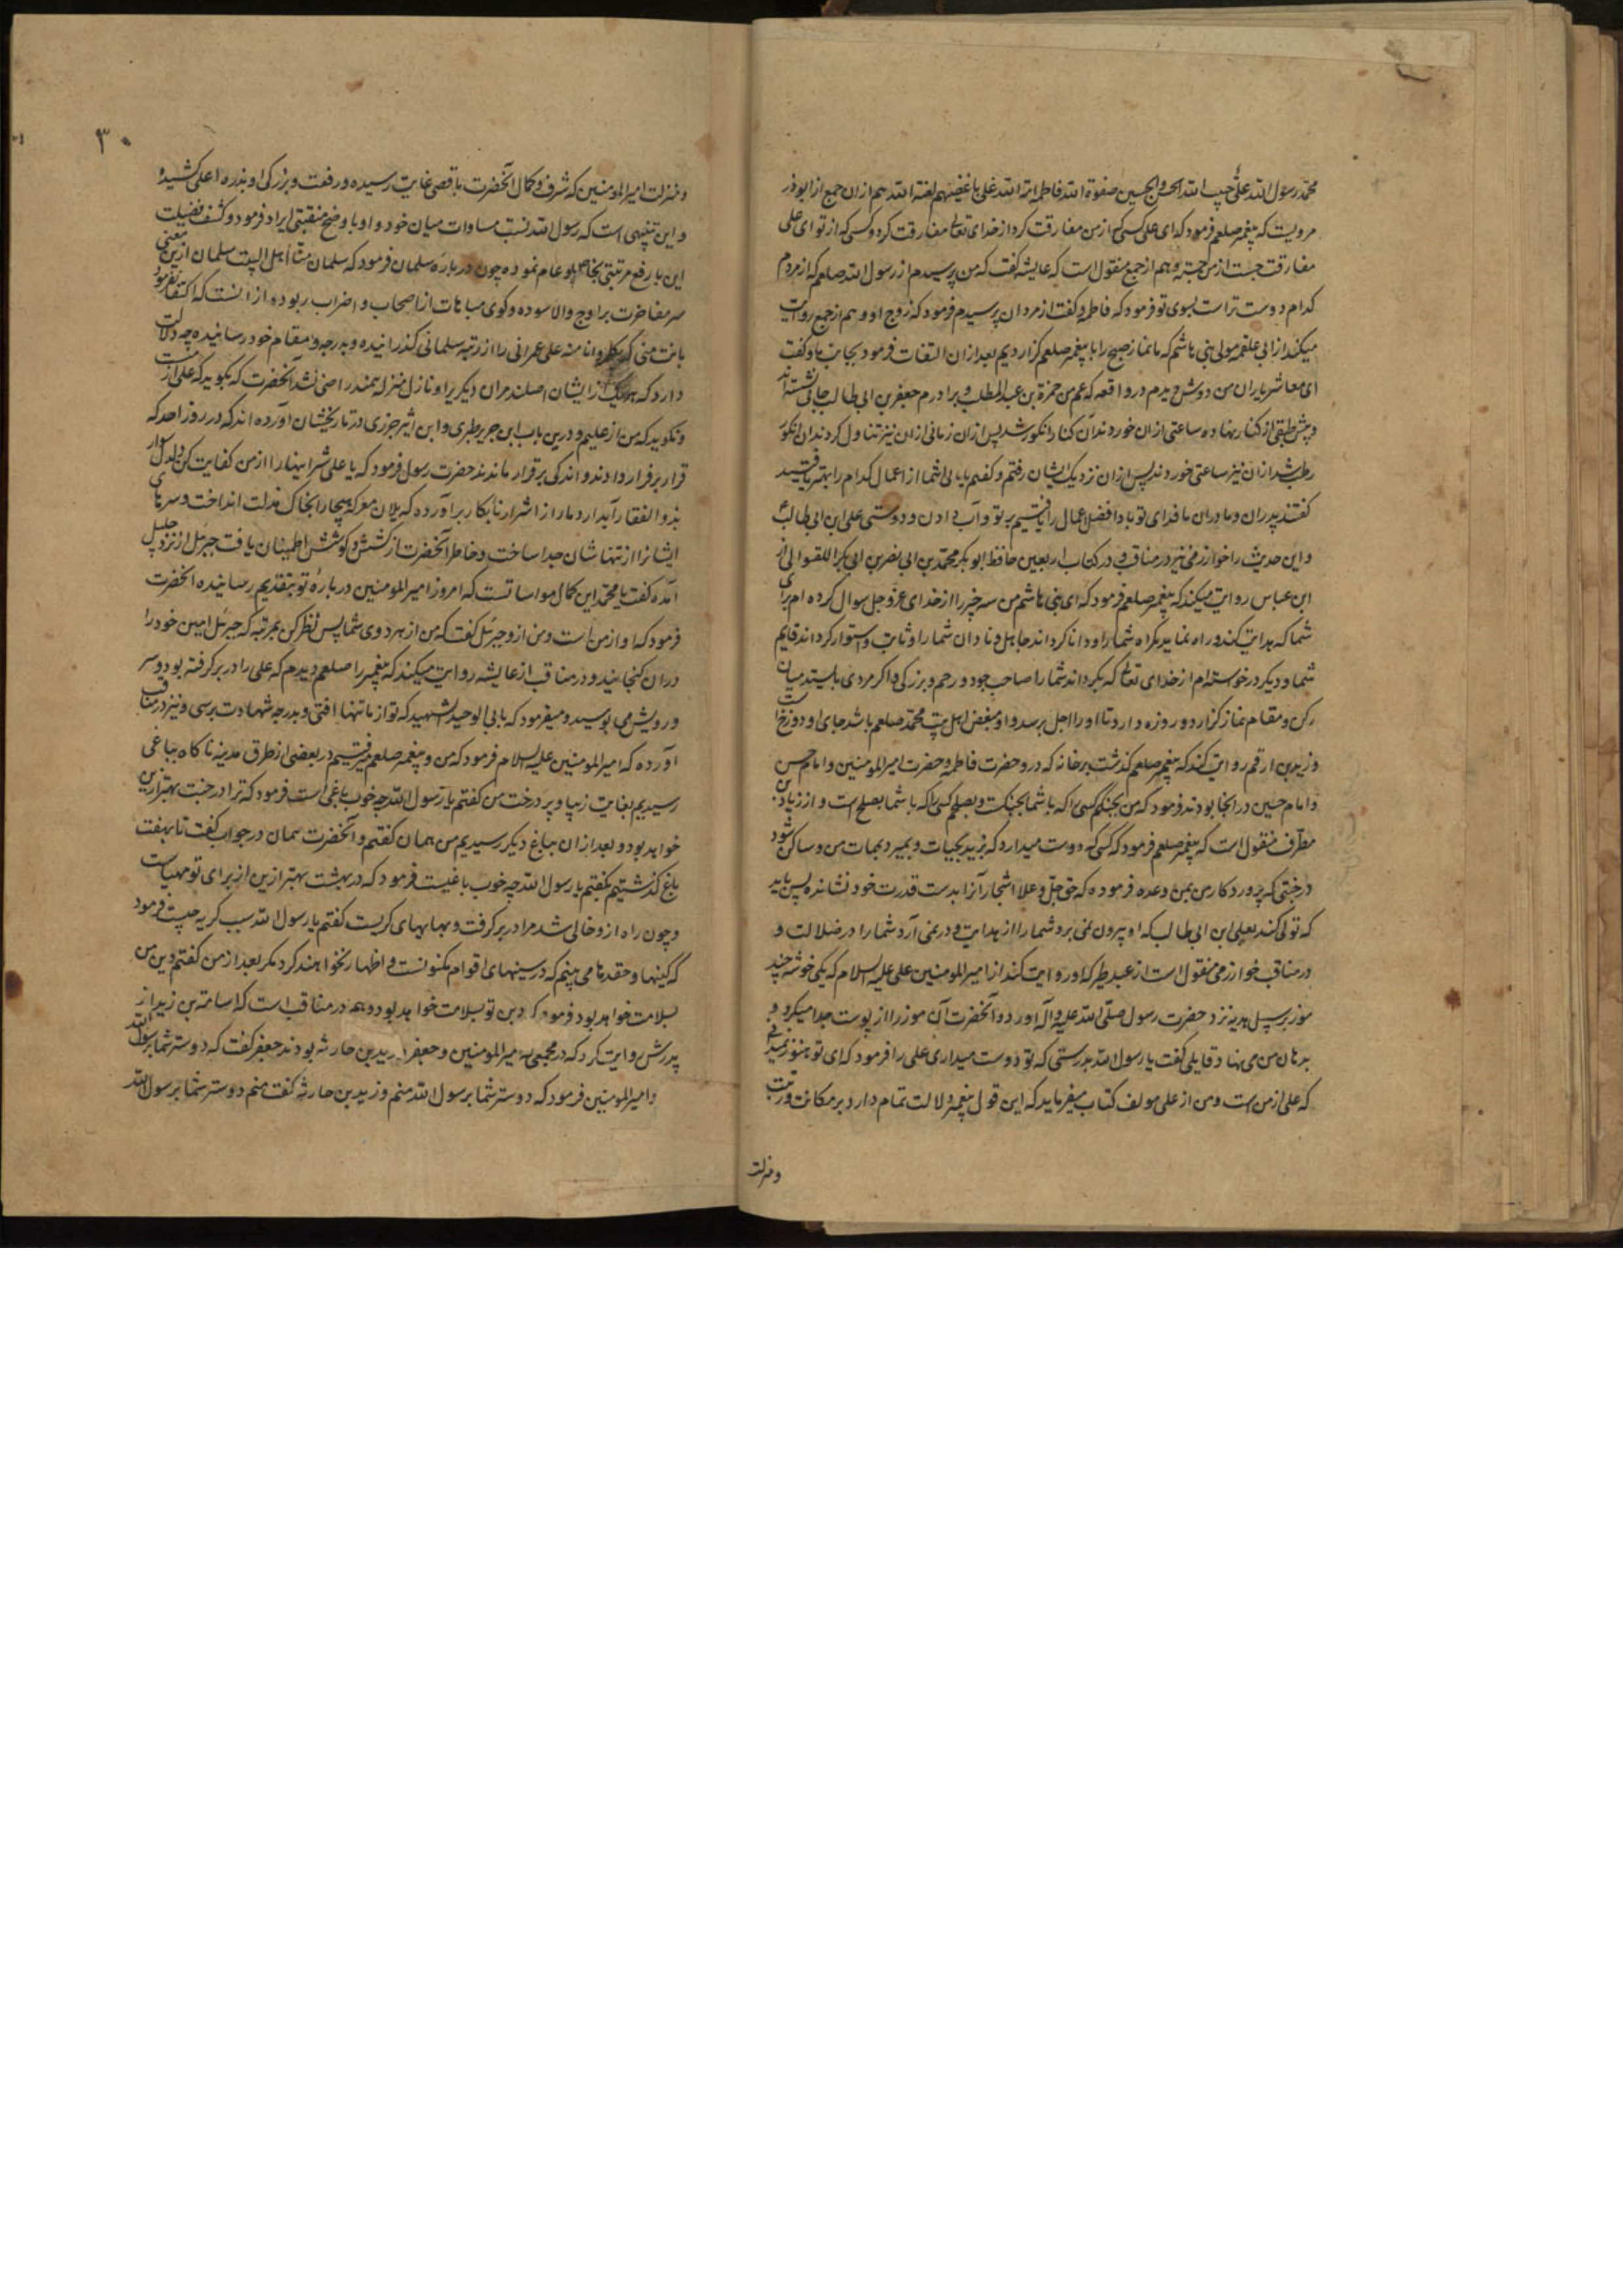 محمد رسول الله علی حبیب الله الحسن والحسین صفوة الله فاطمه امة الله علی باغضیهم لعنة الله هم ازان جمع از ابوذر
مرویست که پیغمبر صلعم فرمود که ای علی کسی که از من مفارقت کرد از خدای تعالی مفارقت کرد و کسی که از تو ای علی
مفارقت جست از من جسته و هم از جمع منقول است که عایشه گفت که من پرسیدم از رسول الله صلعم که از مردم
کدام دوست تراست بسوی تو فرمود که فاطمه و گفت از مردان پرسیدم فرمود که زوج او و هم از جمع روایت
میکند از ابی علقمه مولی بنی هاشم که ما نماز صبح را با پیغمبر صلعم گزاردیم بعد ازان التفات فرمود بجانب ما و گفت
ای معاشر یاران من دوش دیدم در واقعه که عم من حمزة بن عبد المطلب و برادرم جعفر بن ابی طالب جائی نشسته اند
و پیش طبقی از کنار نهاده ساعتی ازان خوردند آن کنار انگور شد پس ازان زمانی ازان نیز تناول کردند آن انگور
رطب شد ازان نیز ساعتی خوردند پس ازان نزدیک ایشان رفتم و گفتم یابائی شما از اعمال کدام را بهتر یافتید
گفتند پدران و مادران ما فدای تو باد افضل اعمال را یافتیم بر تو و آب دادن و دوستی علی ابن ابی طالب
و این حدیث را خوارزمی نیز در مناقب و در کتاب اربعین حافظ ابو بکر محمد بن ابی نصر بن ابی بکر اللفتوانی از
ابن عباس روایت میکند که پیغمبر صلعم فرمود که ای بنی هاشم من سه چیز را از خدای عز و جل سوال کرده ام برای
شما که هدایت کند و راه نماید گمراه شما را و دانا گرداند جاهل و نادان شما را و ثابت و استوار گرداند قایم
شما و دیگر درخواسته ام از خدای تعالی که بگرداند شما را صاحب جود و رحم و بزرگی و اگر مردی بایستد میان
رکن و مقام نماز گزارد و روزه دارد تا او را اجل برسد و او مبغض اهل بیت محمد صلعم باشد جای او دوزخ است
و زید بن ارقم روایت کند که پیغمبر صلعم گذشت بر خانه که درو حضرت فاطمه و حضرت امیر المومنین و امام حسن
و امام حسین در آنجا بودند فرمود که من بجنگم کسی را که با شما بجنگست و بصلحم کسی را که با شما بصلح است و از زیاد بن
مطرف منقول است که پیغمبر صلعم فرمود که کسی که دوست میدارد که بزید بحیات و بمیرد بممات من و ساکن شود
درختی که پروردکار من بمن وعده فرموده که حق جل و علا اشجار آنرا بدست قدرت خود نشانده پس باید
که تولی کند بعلی ابن ابی طالب که او بیرون نمی برد شما را از هدایت و در نمی آرد شما را در ضلالت و
در مناقب خوارزمی منقول است از عبد که او روایت کند از امیر المومنین علی علیه السلام که یکی خوشه چند
موز برسبیل هدیه نزد حضرت رسول صلی الله علیه و آله آورد و آنحضرت آن موز را از پوست جدا میکرد و
بر دهان من می نهاد قایلی گفت یا رسول الله بدرستی که تو دوست میداری علی را فرمود که ای تو هنوز نمیدانی
که علی از من است و من از علی مولف کتاب میفرماید که این قول پیغمبر دلالت تمام دارد بر مکانت و رتبت
ومنزلت
۳۰
ومنزلت امیر المومنین که شرف و کمال آنحضرت باقصی غایت رسیده و رفعت و بزرگی او بذره اعلی کشیده
و این تنبیهی است که رسول الله نسبت مساوات میان خود و او با وضح منقبتی ایراد فرمود و کشف فضیلت
این با رفع مرتبتی بخاص و عام نموده چون درباره سلمان فرمود که سلمان منا اهل البیت سلمان ازین معنی
سر مفاخرت بر اوج والا سوده و گوی مباهات از اصحاب و اضراب ربوده از آنست که اکتفا نفرمود
بانت منی و انا منه علی عمرانی را از رتبه سلمانی گذرانیده و بدرجه و مقام خود رسانیده چه دلالت
دارد که هر یک از ایشان اصلند مران دیگر را و نازل منزله همند راضی نشد آنحضرت که بگوید که علی از منست
و نگوید که من از علیم و درین باب ابن جریر طبری و ابن اثیر جزری در تاریخشان آورده اند که در روز احد که
قرار بر فرار دادند و اندکی برقرار ماندند حضرت رسول فرمود که یا علی شر اینها را از من کفایت کن دلدل سوار
بذو الفقار آبدار دمار از اشرار نابکار برآورده که یلان معرکه هیجا را بخاک مذلت انداخت و سرهای
ایشانرا از تنها شان جدا ساخت و خاطر آنحضرت از کشش و کوشش اطمینان یافت جبرئیل از نزد جلیل
آمده گفت یا محمد این کمال مواساتست که امروز امیر المومنین درباره تو بتقدیم رسانیده آنحضرت
فرمود که او از من است و من ازو جبرئیل گفت که من از هر دوی شما پس نظر کن بمرتبه که جبرئیل امین خود را
دران گنجانید و در مناقب از عایشه روایت میکند که پیغمبر را صلعم دیدم که علی را در بر گرفته بود و سر
و رویش می بوسید و میفرمود که بابی الوحید الشهید که تو از ما تنها افتی و بدرجه شهادت برسی و نیز در مناقب
آورده که امیر المومنین علیه السلام فرمود که من و پیغمبر صلعم میرفتیم در بعضی از طرق مدینه ناگاه بباغی
رسیدیم بغایت زیبا و پر درخت من گفتم یا رسول الله چه خوب باغی است فرمود که ترا در جنت بهتر ازین
خواهد بود و بعد ازان بباغ دیگر رسیدیم من همان گفتم و آنحضرت همان در جواب گفت تا بهفت
باغ گذشتیم بگفتم یا رسول الله چه خوب باغیست فرمود که در بهشت بهتر ازین از برای تو مهیاست
و چون راه ازو خالی شد مرا در بر گرفت و بهایهای گریست گفتم یا رسول الله سبب گریه چیست فرمود
که کینها و حقدها می بینم که در سینهای اقوام مکنونست و اظهار نخواهند کرد مگر بعد از من گفتم دین من
بسلامت خواهد بود فرمود که دین تو بسلامت خواهد بود و هم در مناقب است که اسامة بن زید از
پدرش روایت کرد که در مجمعی که امیر المومنین و جعفر و زید بن حارثه بودند جعفر گفت که دوستر شما برسول الله
و امیر المومنین فرمود که دوستر شما برسول الله منم و زید بن حارثه گفت منم دوستر شما برسول الله